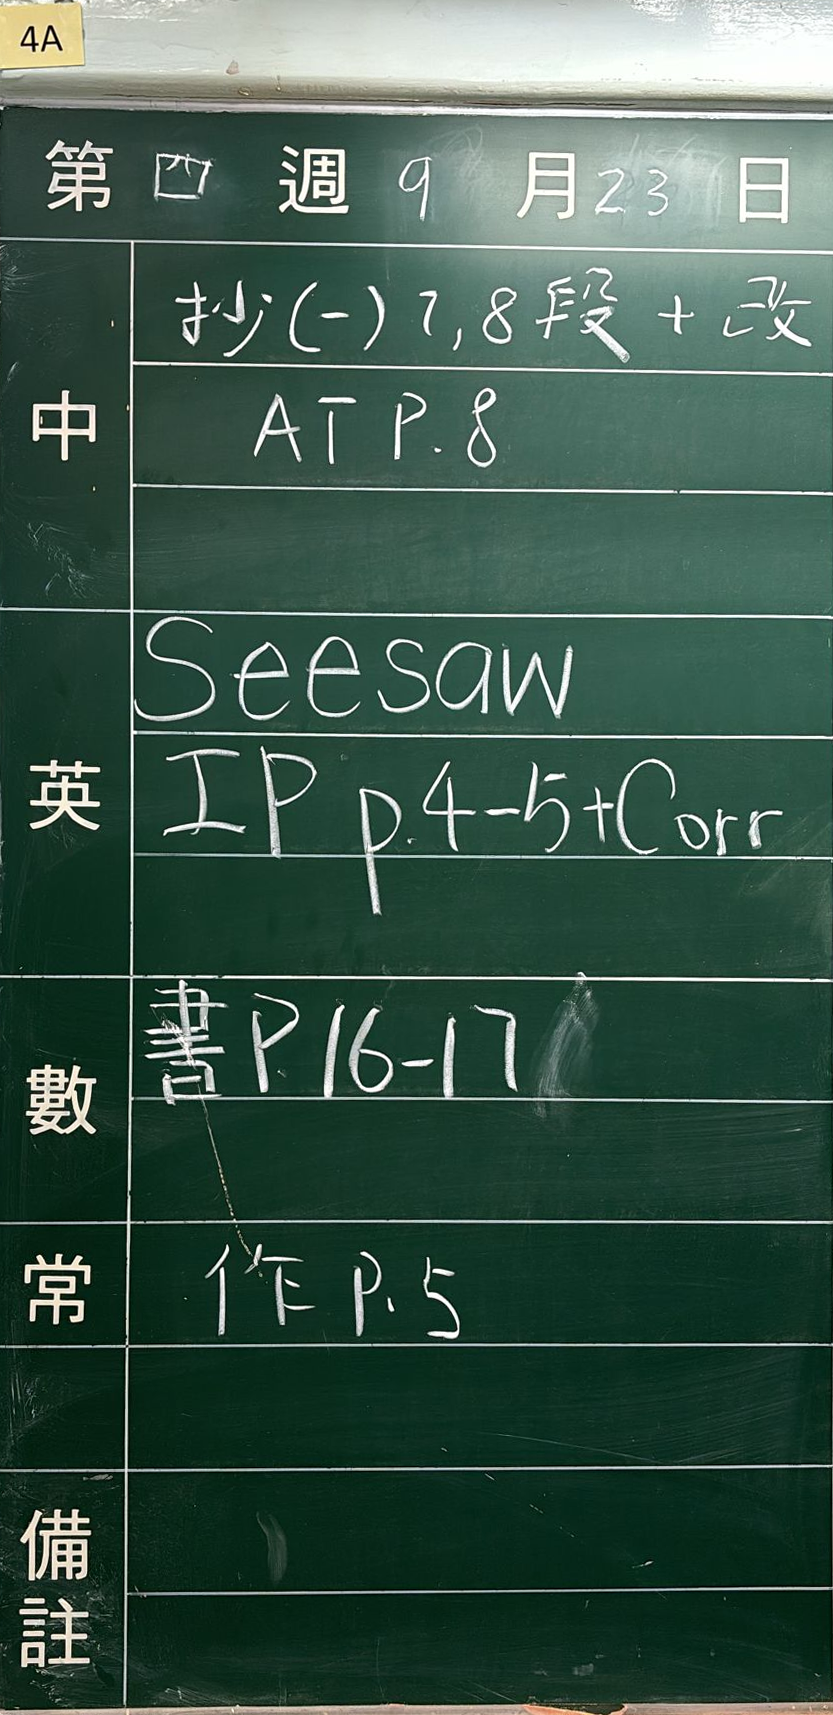 4A
第四週9月23日
中
抄(一)7,8段+改
AT P.8
英
Seesaw
IP p.4-5+Corr
數
書P.16-17
常
作P.5
備註